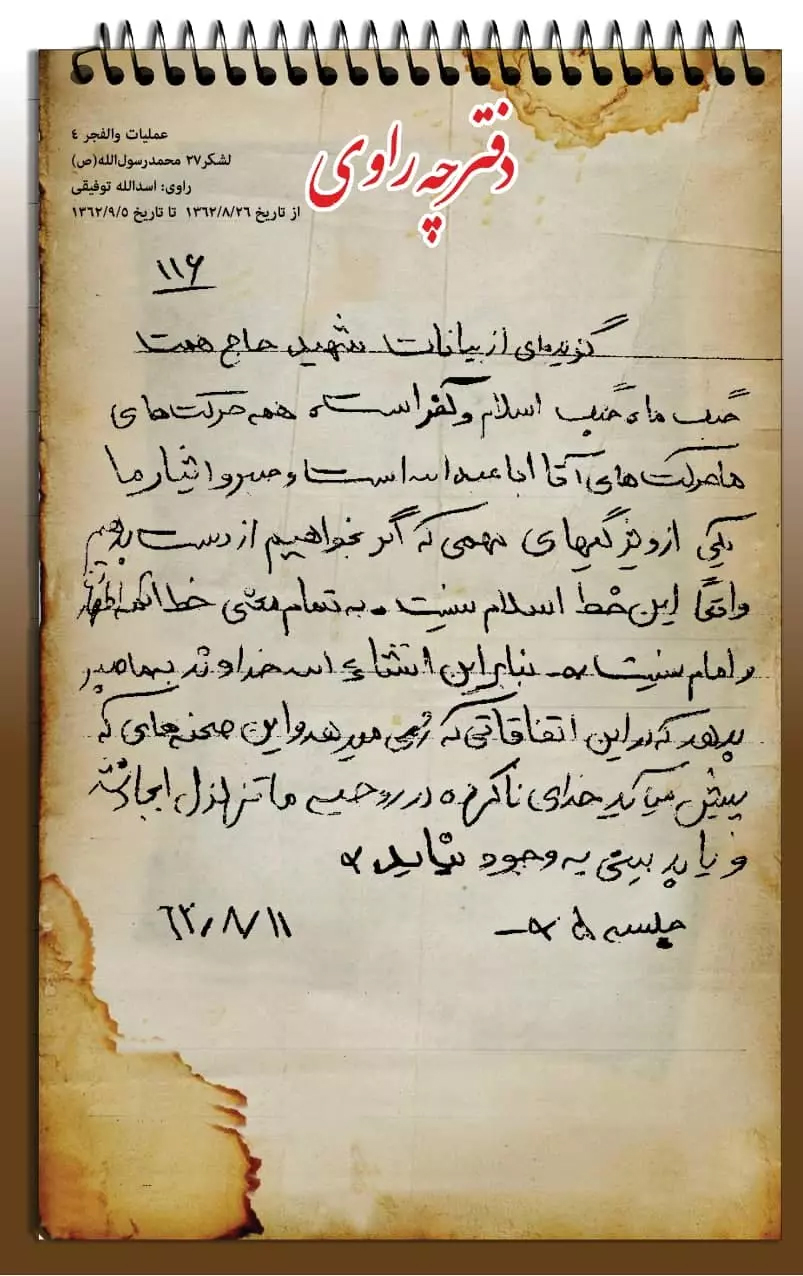 دفترچه راوی
عملیات والفجر ٤
لشکر۲۷ محمدرسول‌الله(ص)
راوی: اسدالله توفیقی
از تاریخ ۱۳٦۲/۸/۲٦ تا تاریخ ۱۳٦۲/۹/۵
۱۱۶
گزیده‌ای از بیانات شهید حاج همت
جنگ ما، جنگ اسلام و کفر است، همه حرکت‌های
ما حرکت‌های آقا اباعبدالله است و صبر و ایثار ما
یکی از ویژگیهای مهمی که اگر بخواهیم از دست بدهیم
واقعاً این خط اسلام نیست. به تمام معنی خط ائمه اطهار
و امام نیست. بنابراین انشاء الله خداوند به ما صبر
بدهد که در این اتفاقاتی که رخ میدهد و این صحنه‌های که
پیش می‌آید خدای ناکرده در روحیه ما تزلزل ایجاد نشد
و یا بدبینی به وجود نیاید.
جلسه
۶۲/۸/۱۱